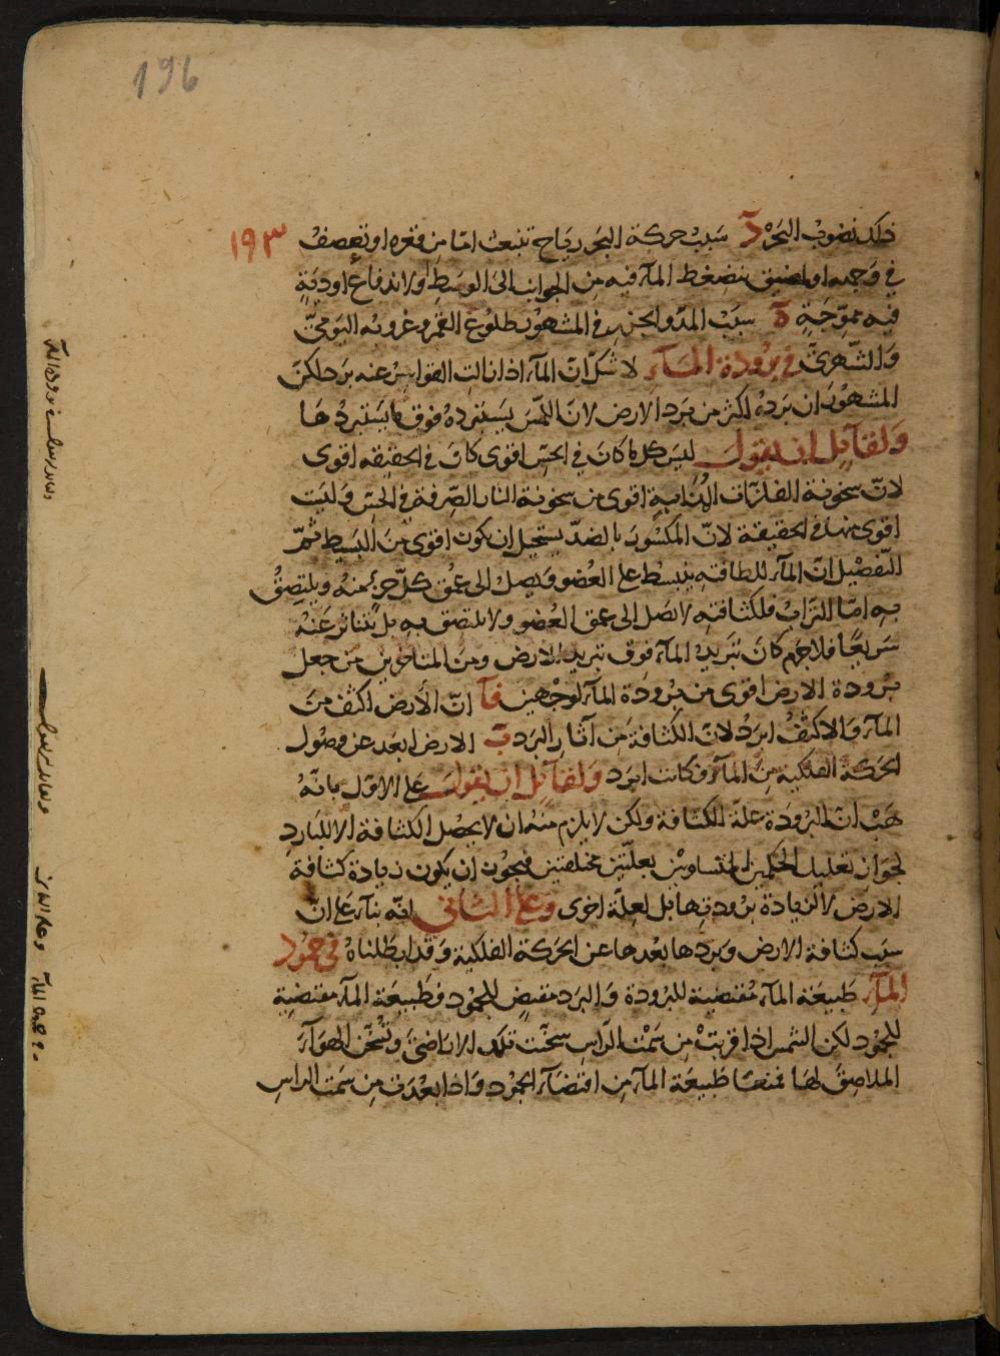 196
١٩٣
ذلك نضوب البحر دَ سبب حركة البحر رياح تنبعث امّا من قعره او تعصف
في وجهه او لمضيق ينضغط المآء فيه من الجوانب الى الوسط او لاندفاع اودية
فيه مموّجة هَ سبب المدّ والجزر في المشهور طلوع القمر وغروبه اليوميّ
والشهريّ في برودة المآء لا شكّ انّ المآء اذا زالت القواسر عنه برد لكنّ
المشهور ان برده اكثر من برد الارض لانّ اللمس يستبرده فوق ما يستبردها
ولقآئل ان يقول ليس كل ما كان في الحس اقوى كان في الحقيقه اقوى
لانّ سخونة الفلزّات الذّايبة اقوى من سخونة النار الصّرفة في الحسّ وليست
اقوى منها في الحقيقة لانّ المكسور بالضدّ يستحيل ان يكون اقوى من البسيط ثمّ
التّفصيل انّ المآء للطافته ينبسط على العضو ويصل الى عمق كلّ جزء منه ويلتصقُ
به امّا التراب فلكثافته لا يصل الى عمق العضو ولا يلتصق به بل يتناثر عنه
سريعًا فلا جرم كان تبريد المآء فوق تبريد الارض ومن المتاخرين من جعل
برودة الارض اقوى من برودة المآء لوجهين فآ انّ الارض اكثف من
المآء والاكثف ابرد لانّ الكثافة من آثار البرد بَ الارض ابعد عن وصول
الحركة الفلكية من المآء فكانت ابرد ولقآئل ان يقول على الاوّل بانّهُ
هب ان البرودة علّة الكثافة ولكن لا يلزم منه ان لا يحصل الكثافة الا للبارد
لجواز تعليل الحكمين المتساويين بعلّتين مختلفتين فيجوز ان يكون زيادة كثافة
الارض لا لزيادة برودتها بل لعلّة اخرى وعلى الثاني انّه بنآء على انّ
سبب كثافة الارض وبردها بعدها عن الحركة الفلكية وقد ابطلناه في جمود
المآء طبيعة المآء مقتضية للبرودة والبرد مقتضٍ للجمود فطبيعة المآء مقتضية
للجمود لكن الشمس اذا قربت من سمت الراس سخّنت تلك الاراضيَ وتسخّن الهوآء
الملاصق لها فمنعا طبيعة المآء من اقتضآء الجمود واذا بعدت من سمت الراس